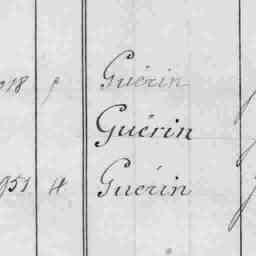 918 Guérin
Guérin
951 4 Guérin